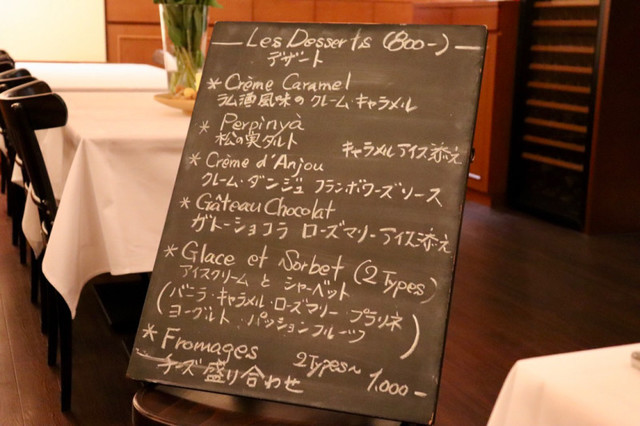 Les Desserts (800-)
デザート
* Crème Caramel
ラム酒風味の クレーム・キャラメル
* Perpinyà
松の実タルト キャラメルアイス添え
* Crème d'Anjou
クレーム・ダンジュ フランボワーズソース
* Gâteau Chocolat
ガトーショコラ ローズマリーアイス添え
* Glace et Sorbet (2 Types)
アイスクリームと シャーベット
(バニラ・キャラメル・ローズマリー・プラリネ
ヨーグルト・パッションフルーツ)
* Fromages
チーズ盛り合わせ 2Types~ 1.000-